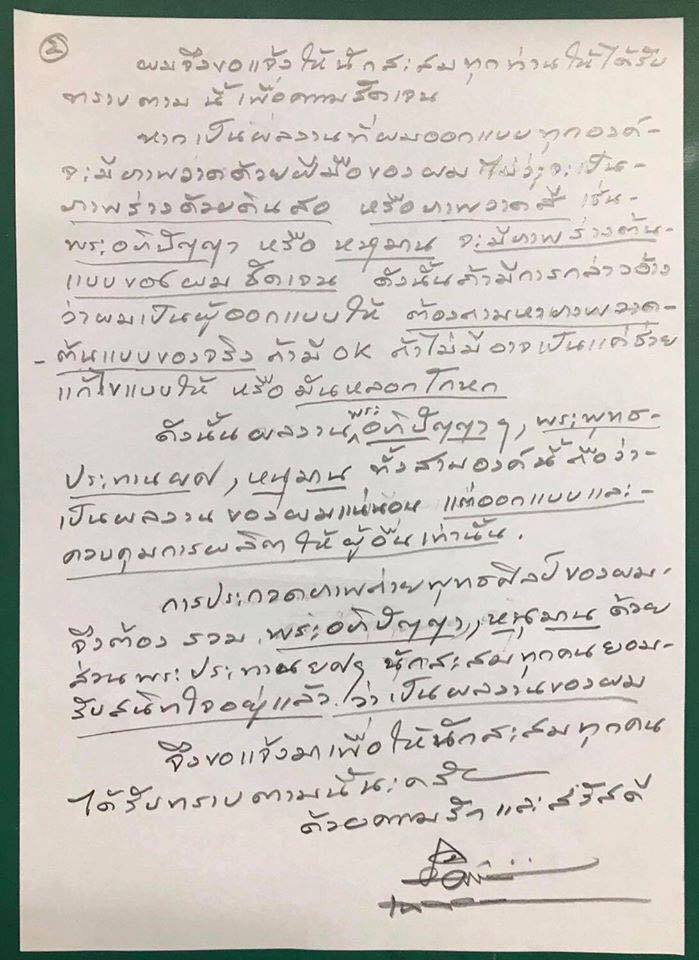 ๒
ผมจึงขอแจ้งให้นักสะสมทุกท่านให้ได้รับ
ทราบตามนี้เพื่อความชัดเจน
หากเป็นผลงานที่ผมออกแบบทุกองค์-
จะมีภาพวาดด้วยฝีมือของผม ไม่ว่าจะเป็น-
ภาพร่างด้วยดินสอ หรือภาพวาดสี เช่น-
พระอภิปัญญา หรือ หนุมาน จะมีภาพร่างต้น-
แบบของผมชัดเจน ดังนั้นถ้ามีการกล่าวอ้าง
ว่าผมเป็นผู้ออกแบบให้ ต้องถามหาภาพวาด-
-ต้นแบบของจริง ถ้ามี OK ถ้าไม่มีอาจเป็นแค่ช่วย
แก้ไขแบบให้ หรือ มันหลอกโกหก
ดังนั้นผลงานพระอภิปัญญาฯ, พระพุทธ-
ประทานยศ, หนุมาน ทั้งสามองค์นี้ถือว่า-
เป็นผลงานของผมแน่นอน แต่ออกแบบและ-
ควบคุมการผลิตให้ผู้อื่นเท่านั้น.
การประกวดภาพถ่ายพุทธศิลป์ของผม.
จึงต้อง รวม พระอภิปัญญา, หนุมาน ด้วย
ส่วนพระประทานยศฯ นักสะสมทุกคนยอม-
รับสนิทใจอยู่แล้ว ว่าเป็นผลงานของผม
จึงขอแจ้งมาเพื่อให้นักสะสมทุกคน
ได้รับทราบตามนี้นะครับ
ด้วยความรักและสวัสดี